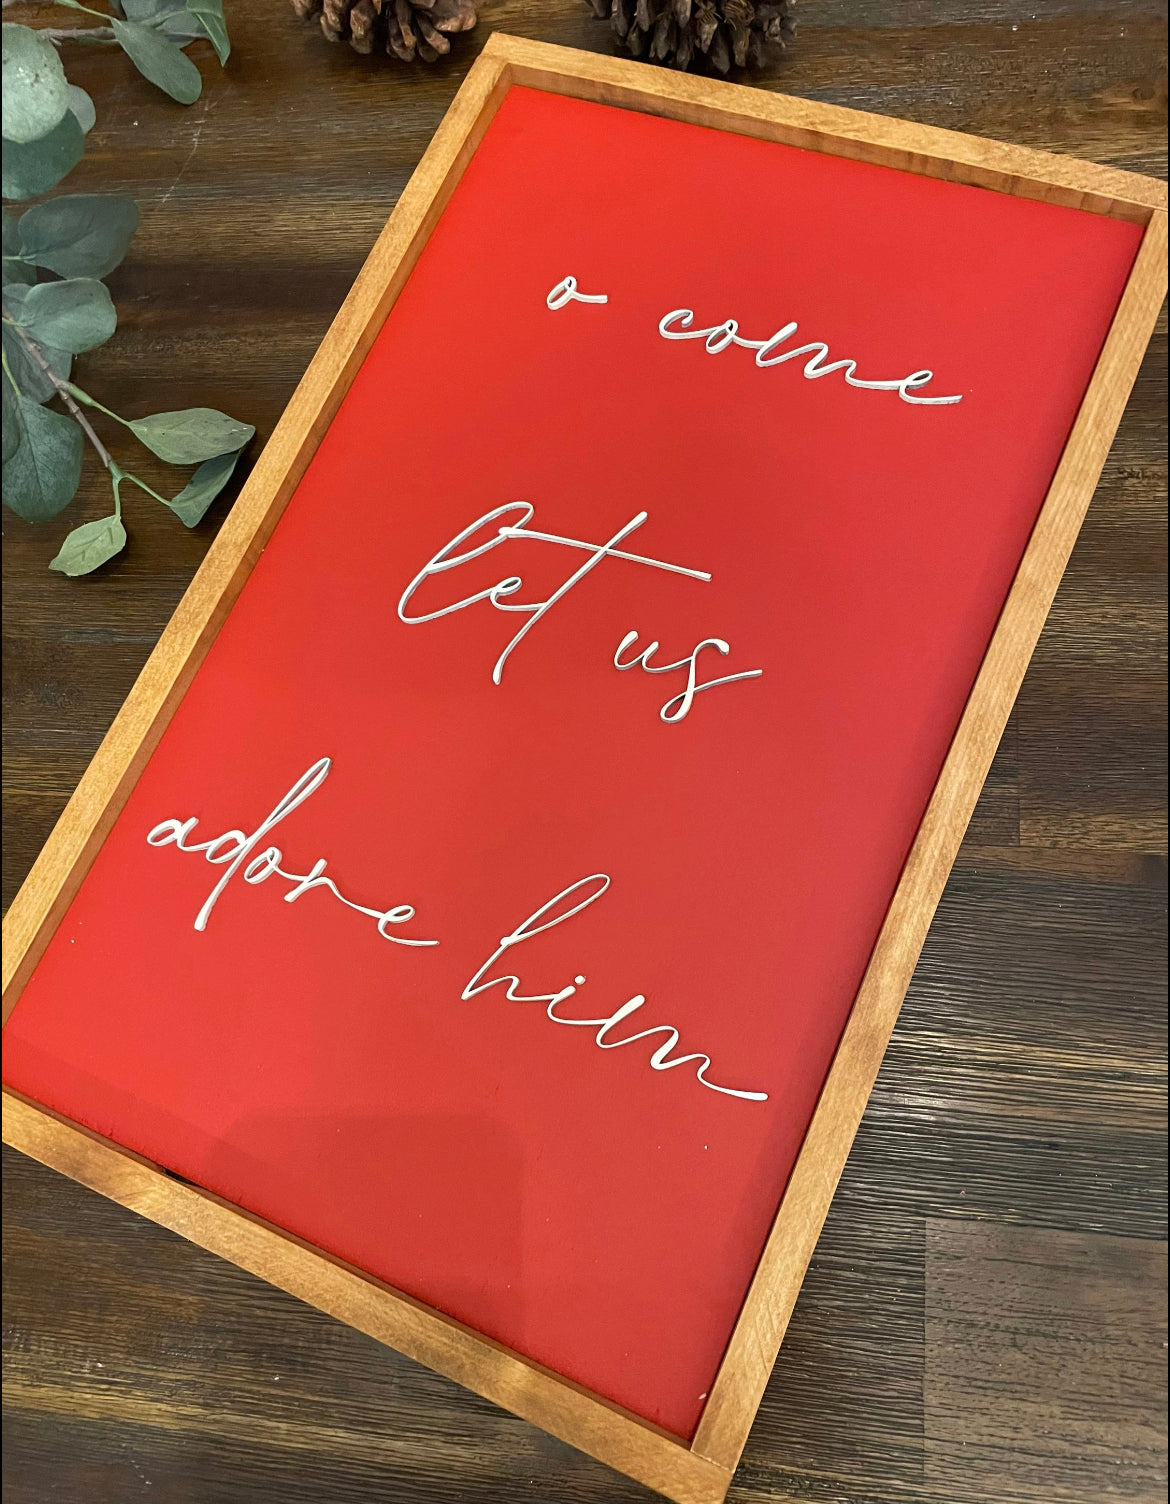 o come
let us
adore him